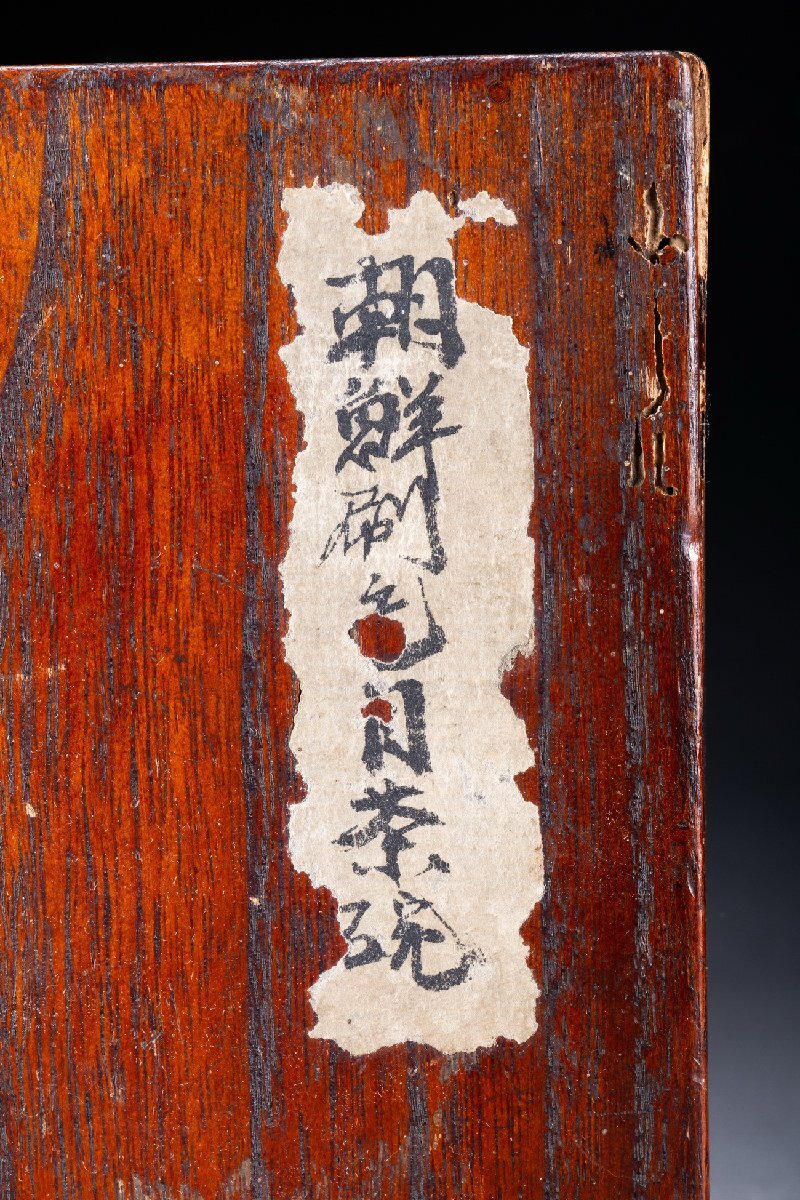 朝鮮刷毛目茶碗